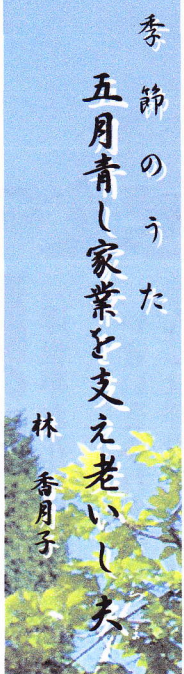 季節のうた
五月青し家業を支え老いし夫
林 香月子